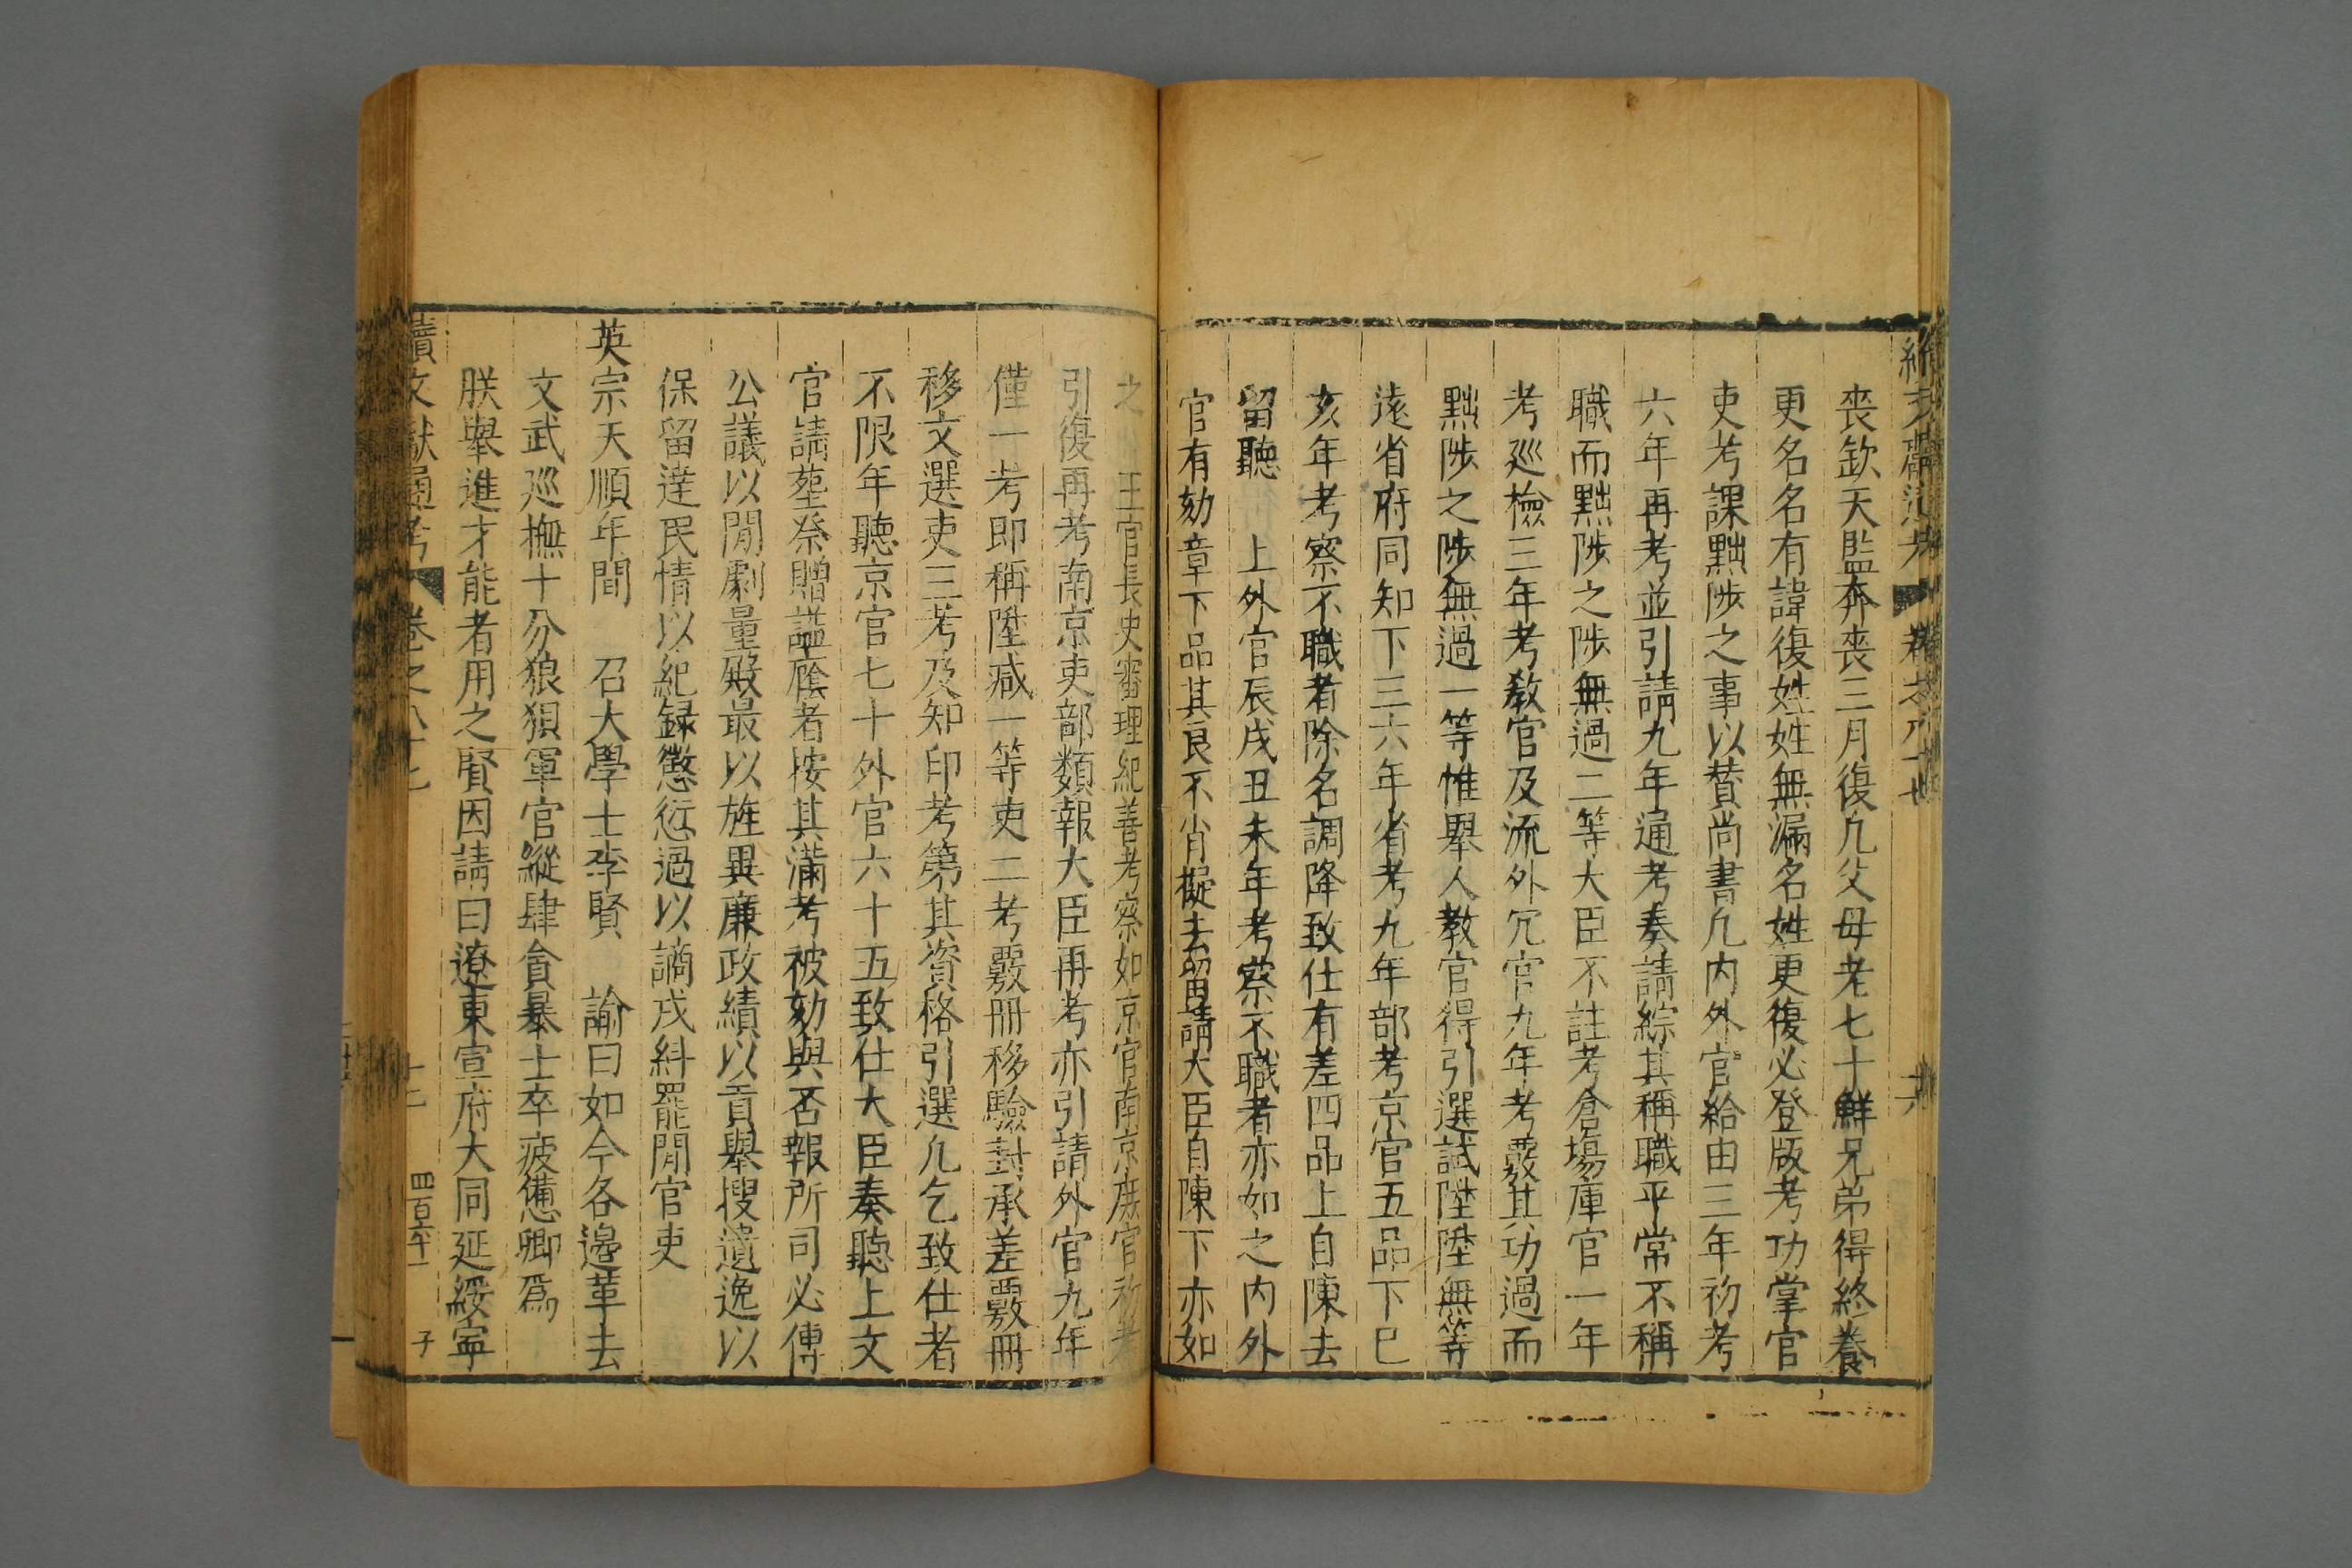 喪欽天監奔喪三月復凢父母老七十鮮兄弟得終養
更名名有諱復姓姓無漏名姓更復必登版考功掌官
吏考課黜陟之事以賛尚書凢内外官給由三年初考
六年再考並引請九年通考奏請綜其稱職平常不稱
職而黜陟之陟無過二等大臣不註考倉塲庫官一年
考廵檢三年考教官及流外冗官九年考覈其功過而
黜陟之陟無過一等惟舉人教官得引選試陞陞無等
逺省府同知下三六年省考九年部考京官五品下巳
亥年考察不職者除名調降致仕有差四品上自陳去
留聽　上外官辰戌丑未年考察不職者亦如之内外
官有劾章下品其良不肖擬去留請大臣自陳下亦如
之　王官長史審理紀善考察如京官南京庶官初考
引復再考南京吏部類報大臣再考亦引請外官九年
僅一考即稱陞减一等吏二考覈冊移驗封承差覈冊
移文選吏三考及知印考第其資格引選凢乞致仕者
不限年聽京官七十外官六十五致仕大臣奏聽上文
官請塟祭贈諡廕者按其滿考被劾與否報所司必傳
公議以閒劇量殿最以旌異廉政績以貢舉搜遺逸以
保留達民情以紀録懲愆過以謫戍糾罷閒官吏
英宗天順年間　召大學士李賢　諭曰如今各邉革去
文武廵撫十分狼狽軍官縱肆貪暴士卒疲憊卿爲
朕舉進才能者用之賢因請曰遼東宣府大同延綏寧
續文獻通考　卷之八十七　四百六十一　子